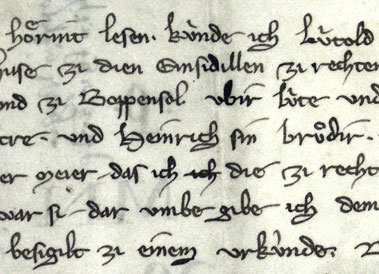 hoͤrint lesen. kuͥnde ich luͥtold
huse zi dien Einsidillen zi rechten
und zi Boppensol ubir luͥte und
tre. und Heinrich sin bruͦdir.
er meier das ich die zi recht
war si dar umbe gibe ich dem
besigilt zi einem urkuͥnde.